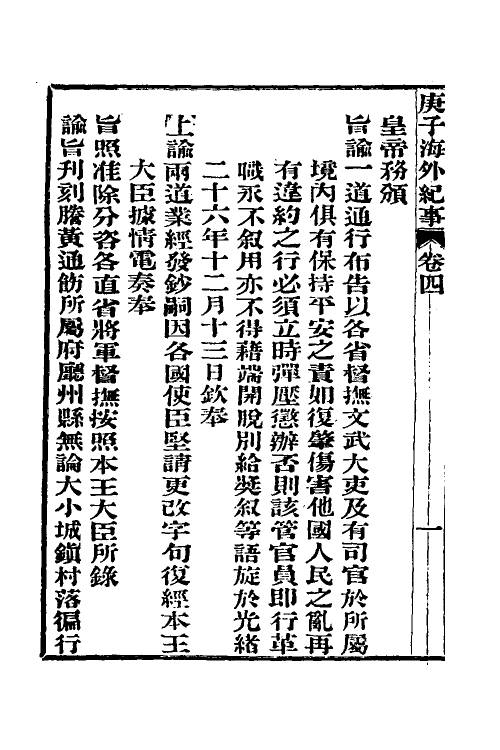 庚子海外紀事 卷四 一
皇帝務頒
旨諭一道通行布告以各省督撫文武大吏及有司官於所屬
境內俱有保持平安之責如復肇傷害他國人民之亂再
有違約之行必須立時彈壓懲辦否則該管官員即行革
職永不敘用亦不得藉端開脫別給奬敘等語旋於光緒
二十六年十二月十三日欽奉
上諭兩道業經發鈔嗣因各國使臣堅請更改字句復經本王
大臣據情電奏奉
旨照准除分咨各直省將軍督撫按照本王大臣所錄
諭旨刊刻謄黃通飭所屬府廳州縣無論大小城鎮村落徧行